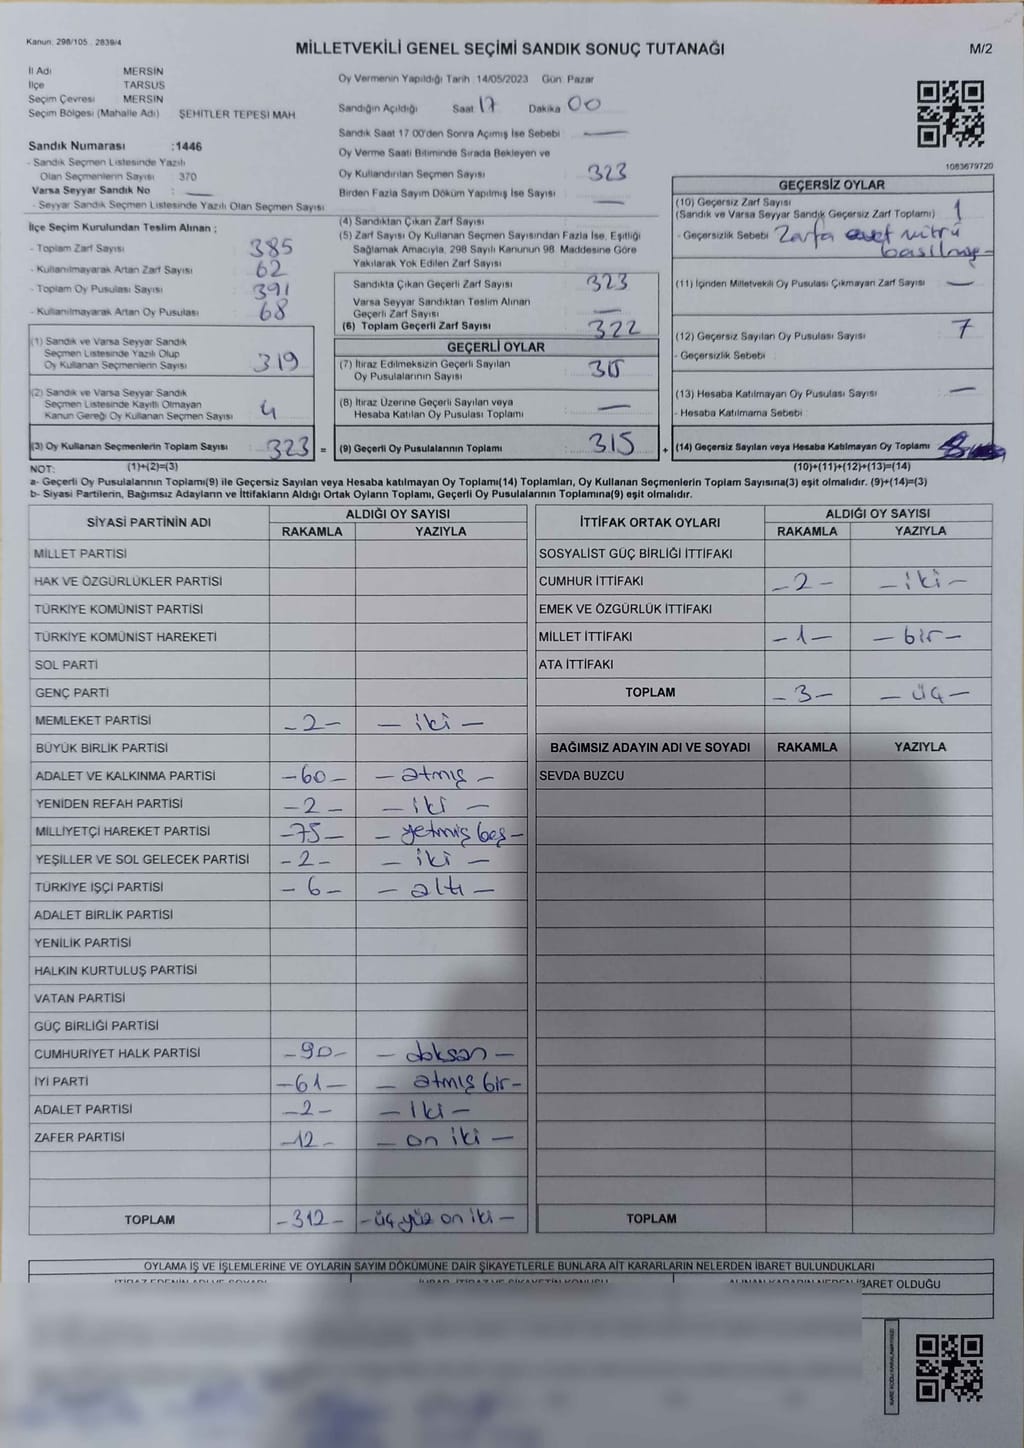 Kanun: 298/105 , 2839/4
MİLLETVEKİLİ GENEL SEÇİMİ SANDIK SONUÇ TUTANAĞI
M/2
İl Adı MERSİN
İlçe TARSUS
Seçim Çevresi MERSİN
Seçim Bölgesi (Mahalle Adı) ŞEHİTLER TEPESİ MAH
Sandık Numarası :1446
- Sandık Seçmen Listesinde Yazılı
Olan Seçmenlerin Sayısı 370
Varsa Seyyar Sandık No : —
- Seyyar Sandık Seçmen Listesinde Yazılı Olan Seçmen Sayısı
Oy Vermenin Yapıldığı Tarih :14/05/2023 Gün: Pazar
Sandığın Açıldığı Saat 17 Dakika 00
Sandık Saat 17 00'den Sonra Açımış İse Sebebi —
Oy Verme Saati Bitiminde Sırada Bekleyen ve
Oy Kullandırılan Seçmen Sayısı 323
Birden Fazla Sayım Döküm Yapılmış İse Sayısı —
1083679720
İlçe Seçim Kurulundan Teslim Alınan ;
- Toplam Zarf Sayısı : 385
- Kullanılmayarak Artan Zarf Sayısı : 62
- Toplam Oy Pusulası Sayısı : 391
- Kullanılmayarak Artan Oy Pusulası : 68
(1) Sandık ve Varsa Seyyar Sandık
Seçmen Listesinde Yazılı Olup
Oy Kullanan Seçmenlerin Sayısı : 319
(2) Sandık ve Varsa Seyyar Sandık
Seçmen Listesinde Kayıtlı Olmayan
Kanun Gereği Oy Kullanan Seçmen Sayısı : 4
(3) Oy Kullanan Seçmenlerin Toplam Sayısı : 323 =
(4) Sandıktan Çıkan Zarf Sayısı :
(5) Zarf Sayısı Oy Kullanan Seçmen Sayısından Fazla İse, Eşitliği
Sağlamak Amacıyla, 298 Sayılı Kanunun 98. Maddesine Göre
Yakılarak Yok Edilen Zarf Sayısı :
Sandıkta Çıkan Geçerli Zarf Sayısı : 323
Varsa Seyyar Sandıktan Teslim Alınan
Geçerli Zarf Sayısı : —
(6) Toplam Geçerli Zarf Sayısı : 322
GEÇERLİ OYLAR
(7) İtiraz Edilmeksizin Geçerli Sayılan
Oy Pusulalarının Sayısı : 315
(8) İtiraz Üzerine Geçerli Sayılan veya
Hesaba Katılan Oy Pusulası Toplamı : —
(9) Geçerli Oy Pusulalarının Toplamı : 315 +
GEÇERSİZ OYLAR
(10) Geçersiz Zarf Sayısı
(Sandık ve Varsa Seyyar Sandık Geçersiz Zarf Toplamı) : 1
- Geçersizlik Sebebi : Zarfa evet mührü
basılmış-
(11) İçinden Milletvekili Oy Pusulası Çıkmayan Zarf Sayısı : —
(12) Geçersiz Sayılan Oy Pusulası Sayısı : 7
- Geçersizlik Sebebi :
(13) Hesaba Katılmayan Oy Pusulası Sayısı : —
- Hesaba Katılmama Sebebi :
(14) Geçersiz Sayılan veya Hesaba Katılmayan Oy Toplamı : 8
NOT: (1)+(2)=(3) (10)+(11)+(12)+(13)=(14)
a- Geçerli Oy Pusulalarının Toplamı(9) ile Geçersiz Sayılan veya Hesaba katılmayan Oy Toplamı(14) Toplamları, Oy Kullanan Seçmenlerin Toplam Sayısına(3) eşit olmalıdır. (9)+(14)=(3)
b- Siyasi Partilerin, Bağımsız Adayların ve İttifakların Aldığı Ortak Oyların Toplamı, Geçerli Oy Pusulalarının Toplamına(9) eşit olmalıdır.
SİYASİ PARTİNİN ADI ALDIĞI OY SAYISI
RAKAMLA YAZIYLA
MİLLET PARTİSİ
HAK VE ÖZGÜRLÜKLER PARTİSİ
TÜRKİYE KOMÜNİST PARTİSİ
TÜRKİYE KOMÜNİST HAREKETİ
SOL PARTİ
GENÇ PARTİ
MEMLEKET PARTİSİ -2- - iki -
BÜYÜK BİRLİK PARTİSİ
ADALET VE KALKINMA PARTİSİ -60- - atmış -
YENİDEN REFAH PARTİSİ -2- - iki -
MİLLİYETÇİ HAREKET PARTİSİ -75- - yetmiş beş -
YEŞİLLER VE SOL GELECEK PARTİSİ -2- - iki -
TÜRKİYE İŞÇİ PARTİSİ -6- - altı -
ADALET BİRLİK PARTİSİ
YENİLİK PARTİSİ
HALKIN KURTULUŞ PARTİSİ
VATAN PARTİSİ
GÜÇ BİRLİĞİ PARTİSİ
CUMHURİYET HALK PARTİSİ -90- - doksan -
İYİ PARTİ -61- - atmış bir -
ADALET PARTİSİ -2- - iki -
ZAFER PARTİSİ -12- - on iki -
TOPLAM -312- - üç yüz on iki -
İTTİFAK ORTAK OYLARI ALDIĞI OY SAYISI
RAKAMLA YAZIYLA
SOSYALİST GÜÇ BİRLİĞİ İTTİFAKI
CUMHUR İTTİFAKI -2- - iki -
EMEK VE ÖZGÜRLÜK İTTİFAKI
MİLLET İTTİFAKI -1- - bir -
ATA İTTİFAKI
TOPLAM -3- - üç -
BAĞIMSIZ ADAYIN ADI VE SOYADI RAKAMLA YAZIYLA
SEVDA BUZCU
TOPLAM
OYLAMA İŞ VE İŞLEMLERİNE VE OYLARIN SAYIM DÖKÜMÜNE DAİR ŞİKAYETLERLE BUNLARA AİT KARARLARIN NELERDEN İBARET BULUNDUKLARI
İBARET OLDUĞU